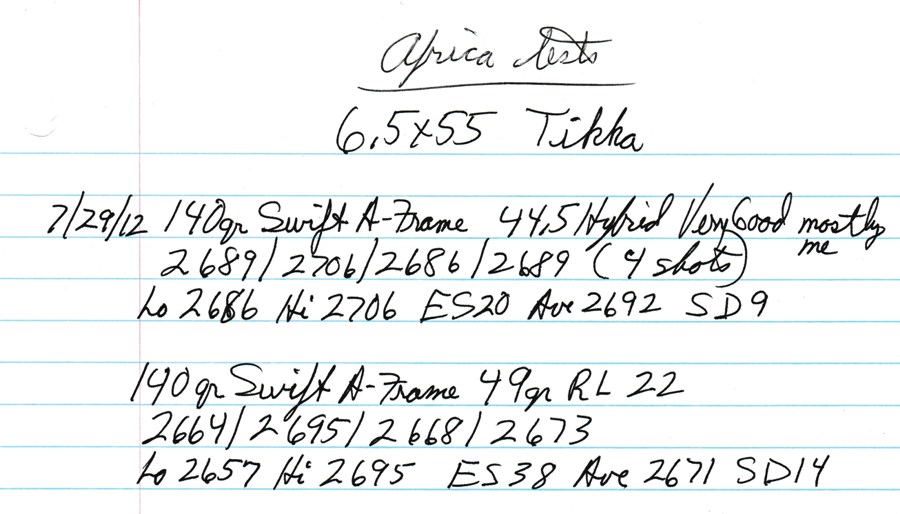 Africa tests
6.5x55 Tikka
7/29/12 140gr Swift A-Frame 44.5 Hybrid Very Good mostly me
2689/2706/2686/2689 (4 shots)
Lo 2686 Hi 2706 ES20 Ave 2692 SD9
140gr Swift A-Frame 49gr RL 22
2664/2695/2668/2673
Lo 2657 Hi 2695 ES38 Ave 2671 SD14